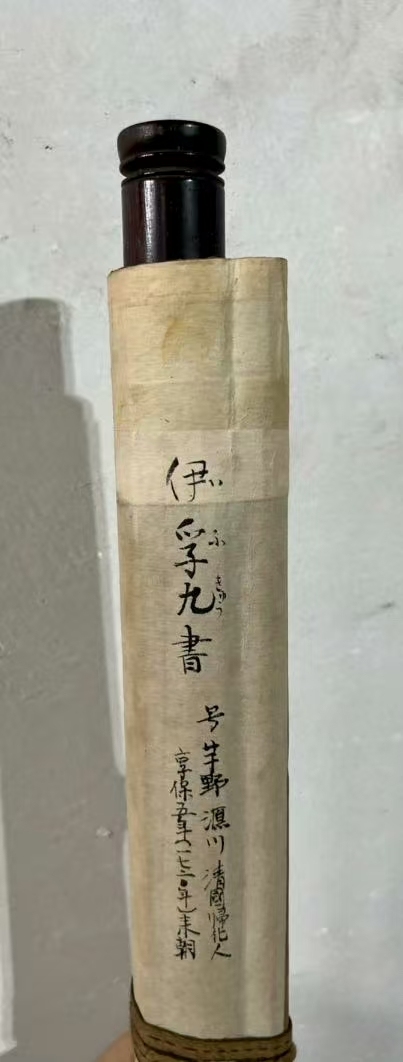 伊孚九書
いふきゅう
号 莘野 漁川 清國歸化人
享保五年(一七二〇年)来朝